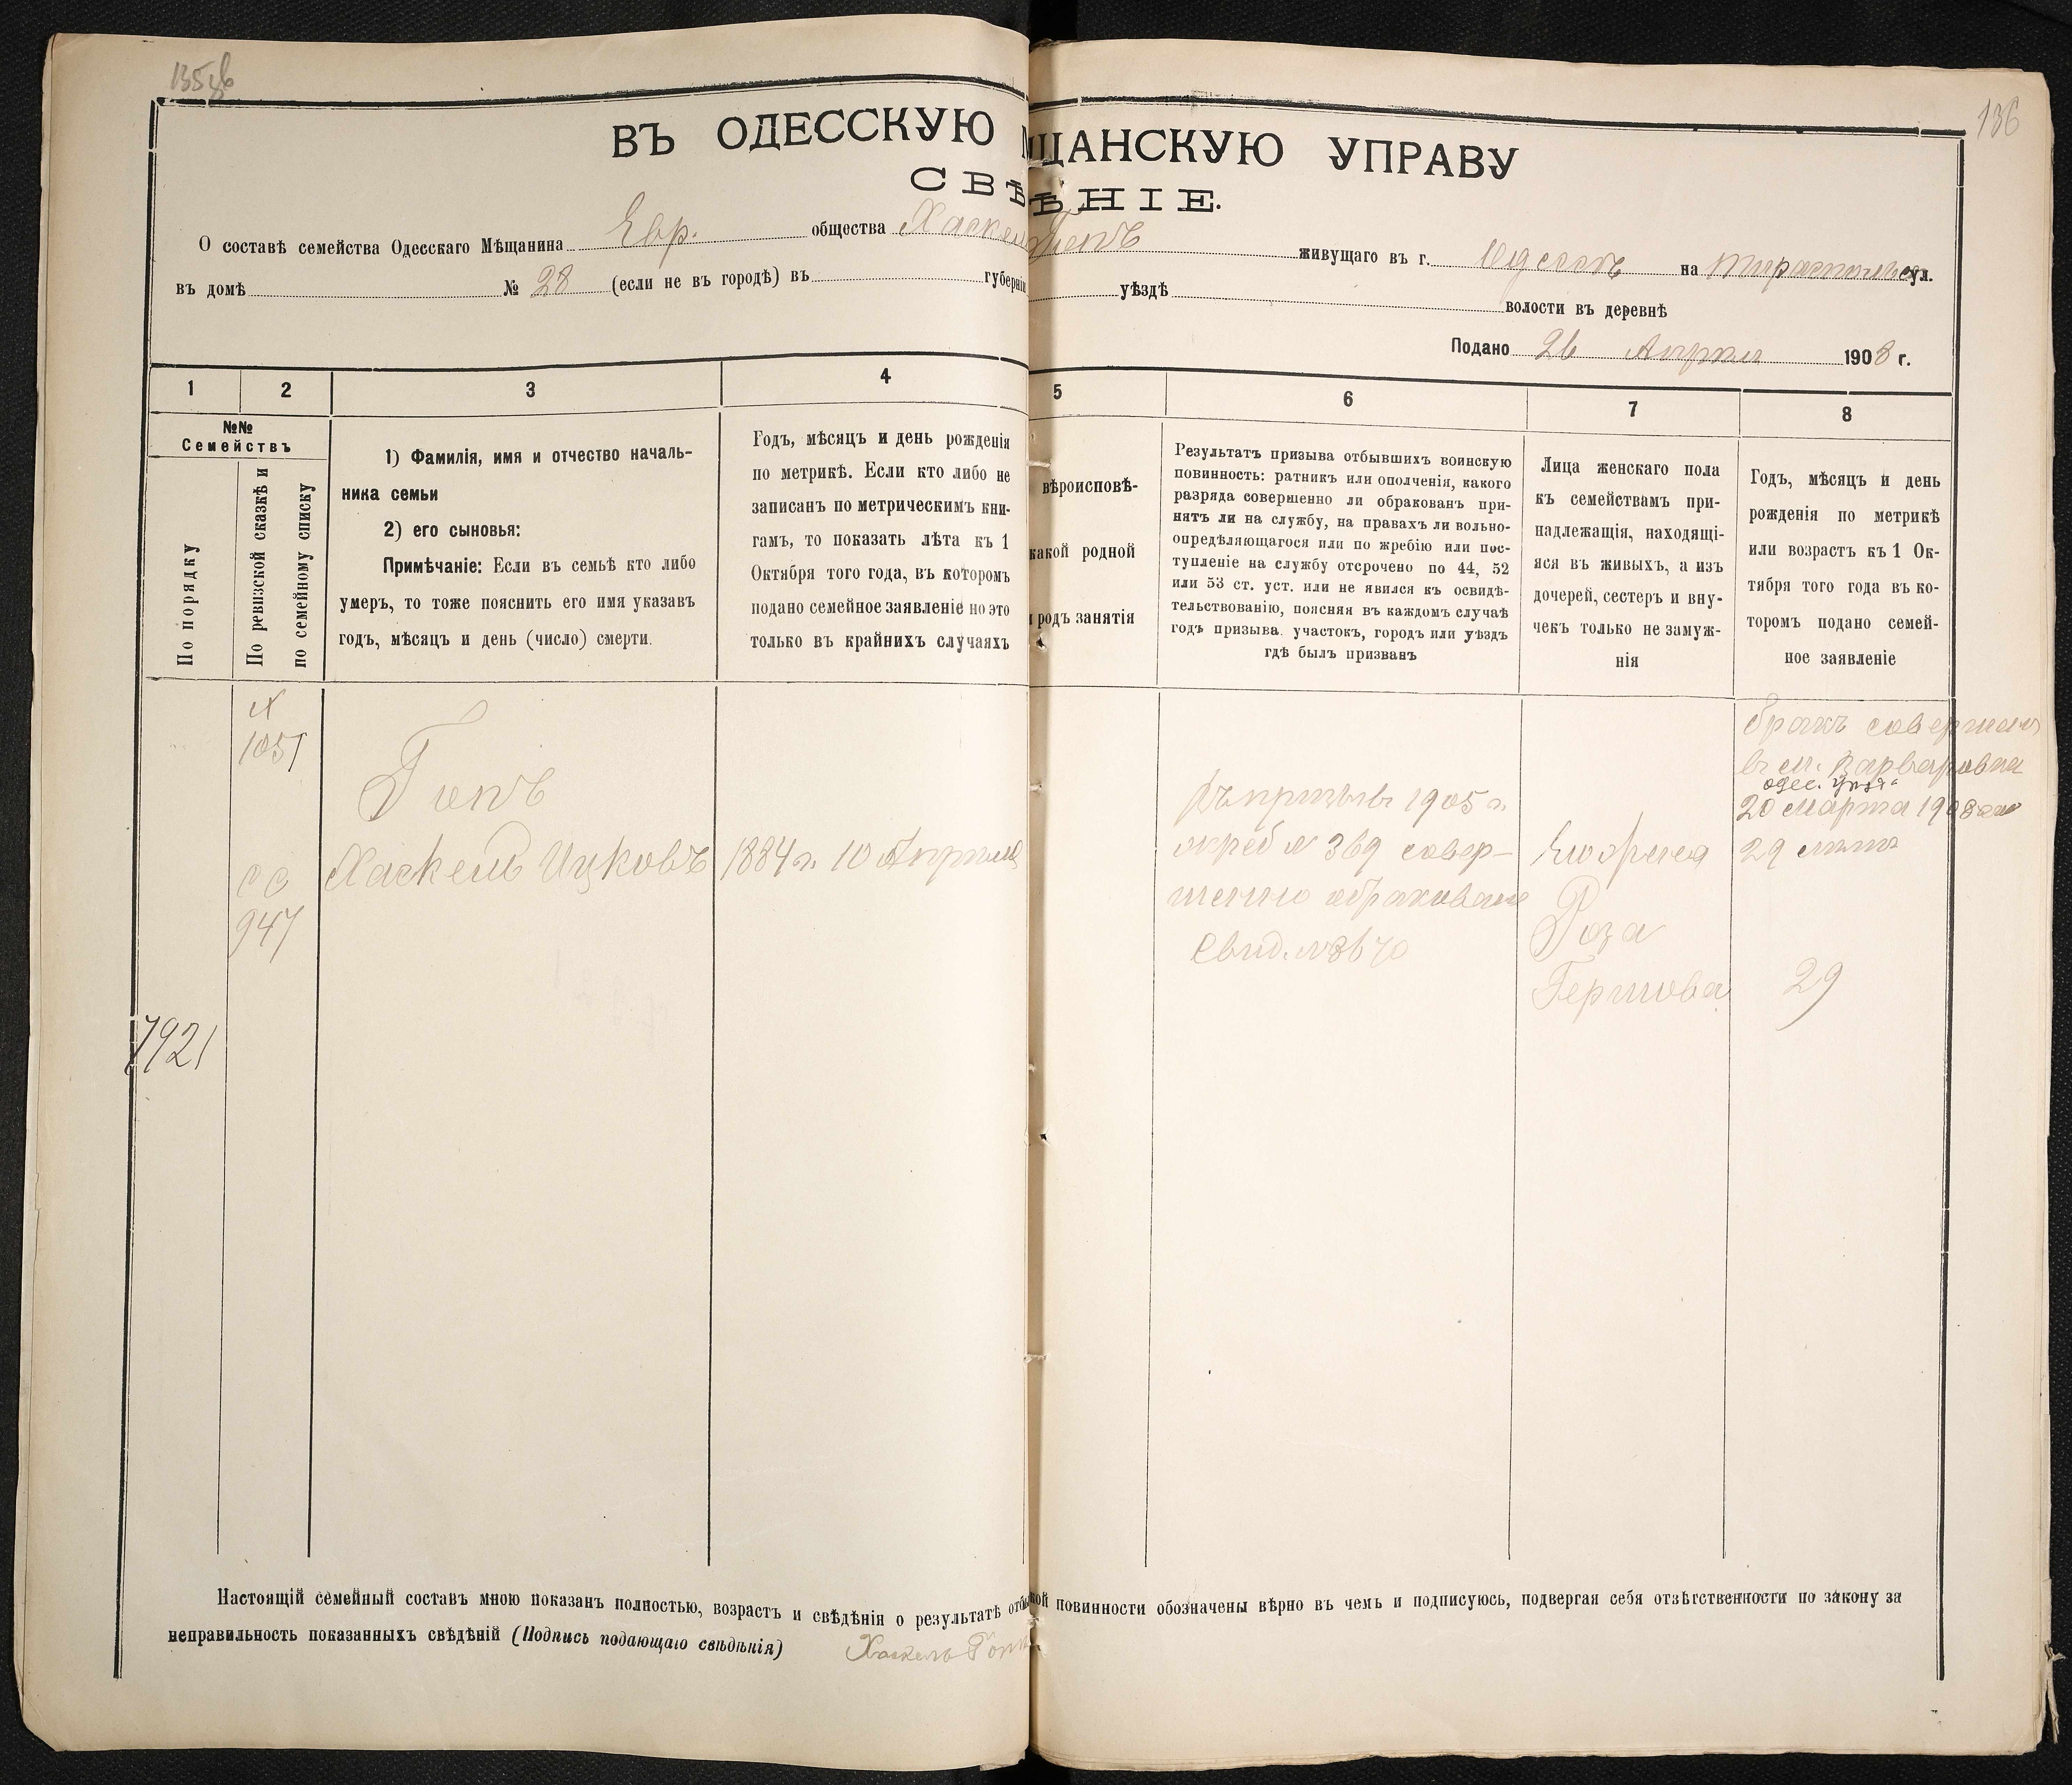 136
ВЪ ОДЕССКУЮ ЩАНСКУЮ УПРАВУ
СВѢ ѢНІЕ.
О составѣ семейства Одесскаго Мѣщанина Евр. общества Хаскель живущаго въ г. Одессѣ на Тираспольск ул.
въ домѣ № 28 (если не въ городѣ) въ губерніи уѣздѣ волости въ деревнѣ
Подано 26 Апрѣля 1908 г.
1 2 3 4 5 6 7 8
№№
Семействъ
По порядку
По ревизской сказкѣ и
по семейному списку
1) Фамилія, имя и отчество началь-
ника семьи
2) его сыновья:
Примѣчаніе: Если въ семьѣ кто либо
умеръ, то тоже пояснить его имя указавъ
годъ, мѣсяцъ и день (число) смерти.
Годъ, мѣсяцъ и день рожденія
по метрикѣ. Если кто либо не
записанъ по метрическимъ кни-
гамъ, то показать лѣта къ 1
Октября того года, въ которомъ
подано семейное заявленіе но это
только въ крайнихъ случаяхъ
вѣроисповѣ-
какой родной
родъ занятія
Результатъ призыва отбывшихъ воинскую
повинность: ратникъ или ополченія, какого
разряда совершенно ли обракованъ при-
нятъ ли на службу, на правахъ ли вольно-
опредѣляющагося или по жребію или пос-
тупленіе на службу отсрочено по 44, 52
или 53 ст. уст. или не явился къ освидѣ-
тельствованію, поясняя въ каждомъ случаѣ
годъ призыва. участокъ, городъ или уѣздъ
гдѣ былъ призванъ
Лица женскаго пола
къ семействамъ при-
надлежащія, находящі-
яся въ живыхъ, а изъ
дочерей, сестеръ и вну-
чекъ только не замуж-
нія
Годъ, мѣсяцъ и день
рожденія по метрикѣ
или возрастъ къ 1 Ок-
тября того года въ ко-
торомъ подано семей-
ное заявленіе
1051
947
7921
Хаскель Ицковъ
1884 г. 10 Апрѣля
призывъ 1905 г.
жреб № 369 совер-
шенно обракованъ
Свид. № 3670
Роза
Гершова
бракъ совершенъ
въ м. Варваровка
одес. уѣзда
20 Марта 1908 г.
29 лѣтъ
29
Настоящій семейный составъ мною показанъ полностью, возрастъ и свѣдѣнія о результатѣ повинности обозначены вѣрно въ чемъ и подписуюсь, подвергая себя отвѣтственности по закону за
неправильность показанныхъ свѣдѣній (Подпись подающаго свѣдѣнія) Хаскель